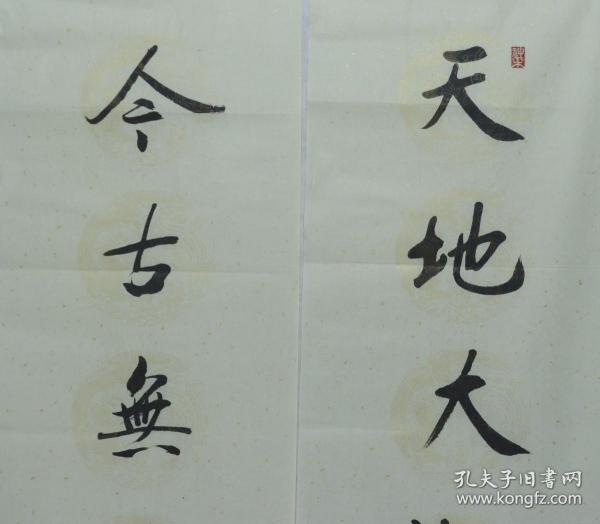 天地大
今古無
孔夫子旧书网
www.kongfz.com